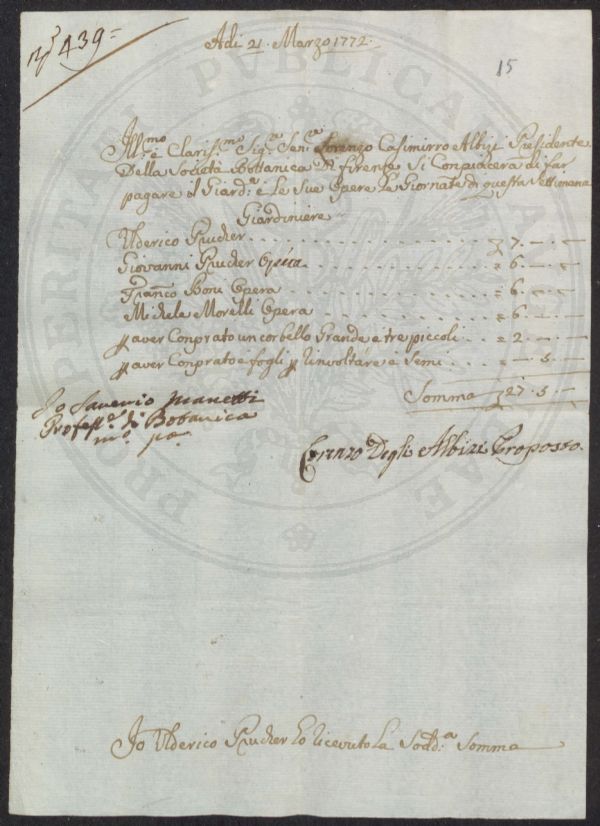 N° 439=
Adi 21. Marzo 1772.
15
Ill:mo e Clariss:mo Sig:e Sen:e Lorenzo Casimirro Albizi Presidente
Della Società Bottanica Di firenze Si Conpiacerà di far
pagare il Giard:e e Le Sue Opere Le Giornate di questa Settimana
Giardiniere
Ulderico Prucker . . . 7. — . —
Giovanni Prucker Opera . . . = 6. — . —
Franco Boni Opera . . . = 6. — . —
Michele Morelli Opera . . . = 6. — . —
p aver Conprato un corbello Grande e tre piccoli . . = 2. — . —
p aver Conprato e fogli p Rinvoltare i Semi . . . = — . 5. —
Somma 27. 5. —
Io Saverio Manetti
Profess.e di Botanica
m.o pa.
Lorenzo Degli Albizi Proposto.
Io Ulderico Prucker Ò ricevuto La Sodd:a Somma
PROSPERITATI PUBLICAE AUGENDAE